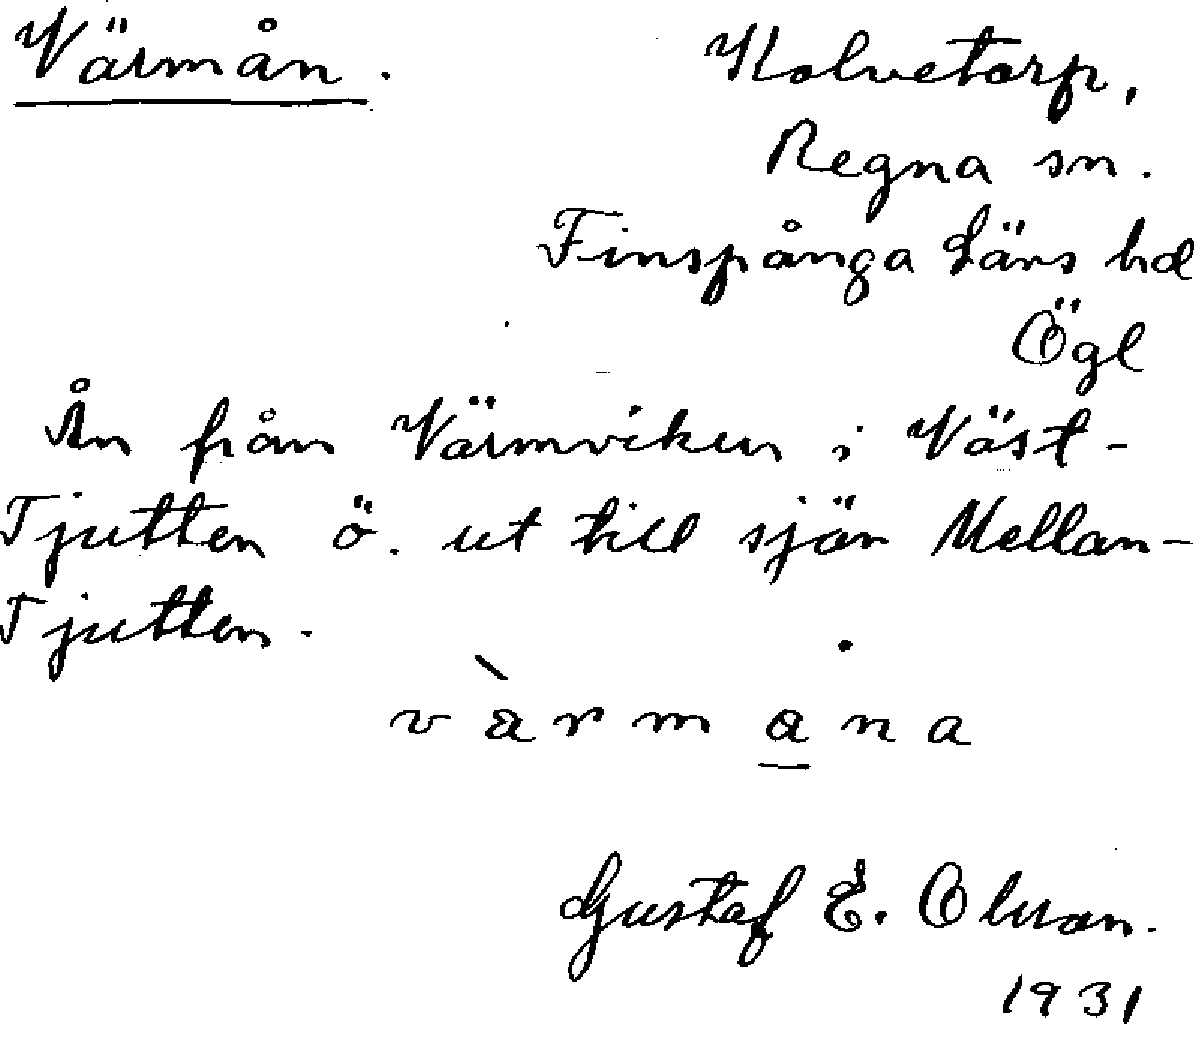 Värmån.
Kolvetorp,
Regna sn.
Finspånga Läns hd
Ögl
Ån från Värmviken i Väst-
Tjutten ö. ut till sjön Mellan-
Tjutten.
Gustaf E. Olsson.
1931